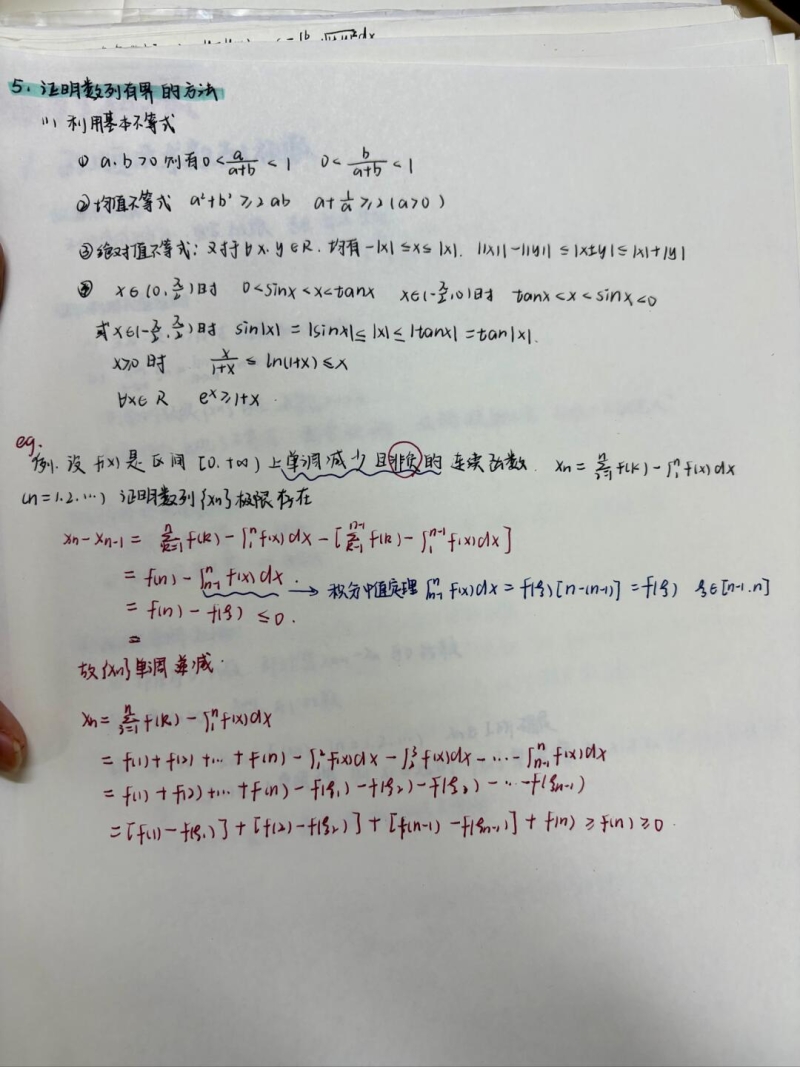 5. 证明数列有界的方法
(1) 利用基本不等式
① a.b>0 则有 0<a/(a+b)<1 0<b/(a+b)<1
②均值不等式 a²+b²≥2ab a+1/a≥2(a>0)
③绝对值不等式: 对于∀x.y∈R. 均有-|x|≤x≤|x|. ||x|-|y||≤|x±y|≤|x|+|y|
④ x∈(0,π/2)时 0<sinx<x<tanx x∈(-π/2,0)时 tanx<x<sinx<0
或x∈(-π/2,π/2)时 sin|x|=|sinx|≤|x|≤|tanx|=tan|x|.
x≥0时 x/(1+x)≤ln(1+x)≤x
∀x∈R e^x≥1+x.
eg.
例. 设f(x)是区间[0.+∞)上单调减少且非负的连续函数. xn=∑_{i=1}^n f(k)-∫_1^n f(x)dx
(n=1.2.…) 证明数列{xn}极限存在
xn-xn-1=∑_{k=1}^n f(k)-∫_1^n f(x)dx-[∑_{k=1}^{n-1} f(k)-∫_1^{n-1} f(x)dx]
=f(n)-∫_{n-1}^n f(x)dx. → 积分中值定理∫_{n-1}^n f(x)dx=f(ξ)[n-(n-1)]=f(ξ) ξ∈[n-1.n]
=f(n)-f(ξ)≤0.
=
故{xn}单调递减.
xn=∑_{i=1}^n f(k)-∫_1^n f(x)dx
=f(1)+f(2)+…+f(n)-∫_1^2 f(x)dx-∫_2^3 f(x)dx-…-∫_{n-1}^n f(x)dx
=f(1)+f(2)+…+f(n)-f(ξ1)-f(ξ2)-f(ξ3)-…-f(ξn-1)
=[f(1)-f(ξ1)]+[f(2)-f(ξ2)]+[f(n-1)-f(ξn-1)]+f(n)≥f(n)≥0.